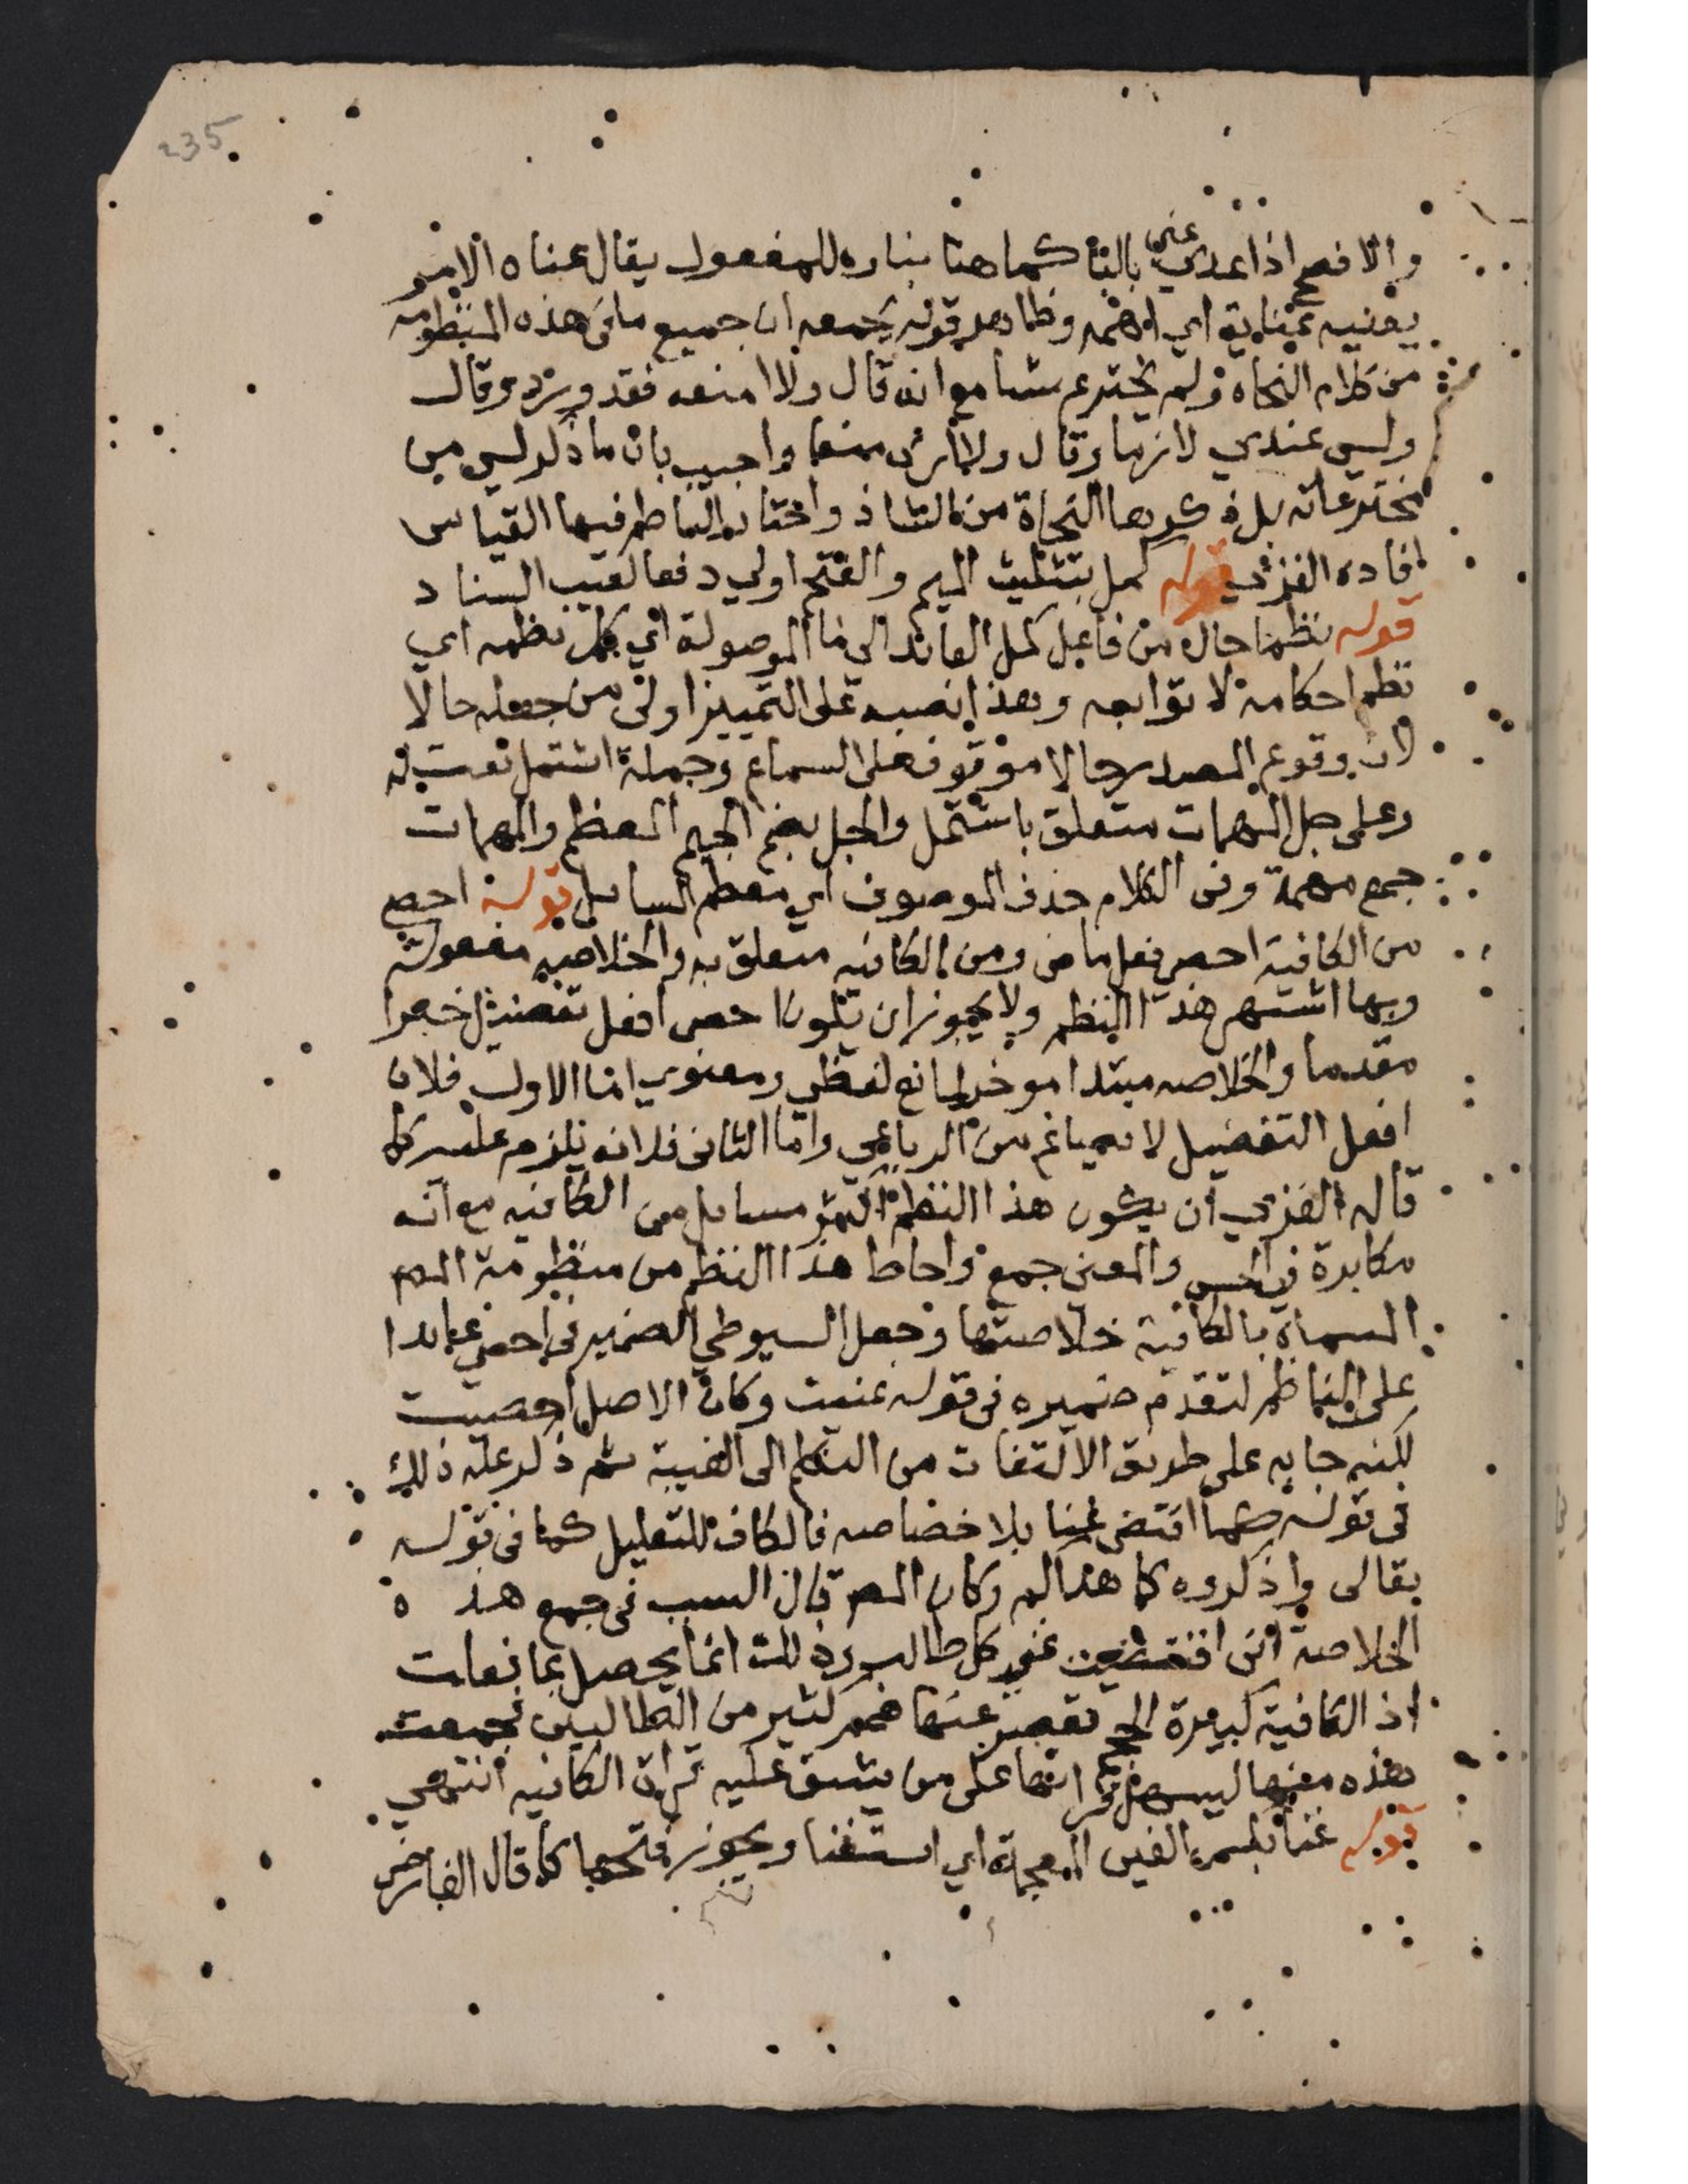 235
والافصح اذا عدي عني بالبا كما هنا بناوه للمفعول يقال عناه الامر
يعنيه عناية اي اهمه وظاهر قوله بجمعه ان جميع ما في هذه المنظومة
من كلام النحاه ولم يخترع شيا مع انه قال ولا امنعه فقد ورد وقال
وليس عندي لازما وقال ولا ارى منعا واجيب بان ما ذكر ليس من
مخترعاته بل ذكرها النحاة من الشاذ واختار الناظم فيها القياس
افاده الغزي قوله كمل بتثليث الميم والفتح اولي دفعا لعيب السناد
قوله نظما حال من فاعل كمل العائد الي ما الموصولة اي كمل نظمه اي
نظم احكامه لا توابعه وهذا نصبه على التمييز اولى من جعله حالا
لان وقوع المصدر حالا موقوف على السماع وجملة اشتمل نعت له
وعلى جل المهمات متعلق باشتمل والجل بضم الجيم المعظم والمهمات
جمع مهمة وفى الكلام حذف الموصوف اي معظم المسايل قوله احصى
من الكافية احصى فعل ماض ومن الكافيه متعلق به والخلاصه مفعوله
وبها اشتهر هذا النظم ولا يجوز ان يكون احصى افعل تفضيل خبرا
مقدما والخلاصه مبتدا موخر لمانع لفظي ومعنوي اما الاول فلان
افعل التفضيل لا يصاغ من الرباعي واما الثاني فلانه يلزم عليه كما
قاله الغزي ان يكون هذا النظم اكثر مسايل من الكافيه مع انه
مكابرة في الحس والمعنى جمع واحاط هذا النظم من منظومة المص
المسماه بالكافية خلاصتها وجعل السيوطي الضمير في احصى عايدا
على الناظم لتقدم ضميره في قوله عنيت وكان الاصل احصيت
لكنه جا به على طريق الالتفات من التكلم الى الغيبة ثم ذكر علة ذلك
فى قوله كما اقتضى غنا بلا خصاصه فالكاف للتعليل كما فى قوله
تعالى واذكروه كما هداكم وكان المص قال السبب في جمع هذه
الخلاصة انى اقتضيت غنى كل طالب وذلك انما يحصل بما فعلت
اذ الكافية كبيرة الحجم تقصر عنها همم كثير من الطالبين فجمعت
هذه منها ليسهل قراتها على من يشق عليه قراة الكافيه انتهى
قوله غنا بكسر الغين المعجمة اي استغنا ويجوز فتحها كما قال الفارضي